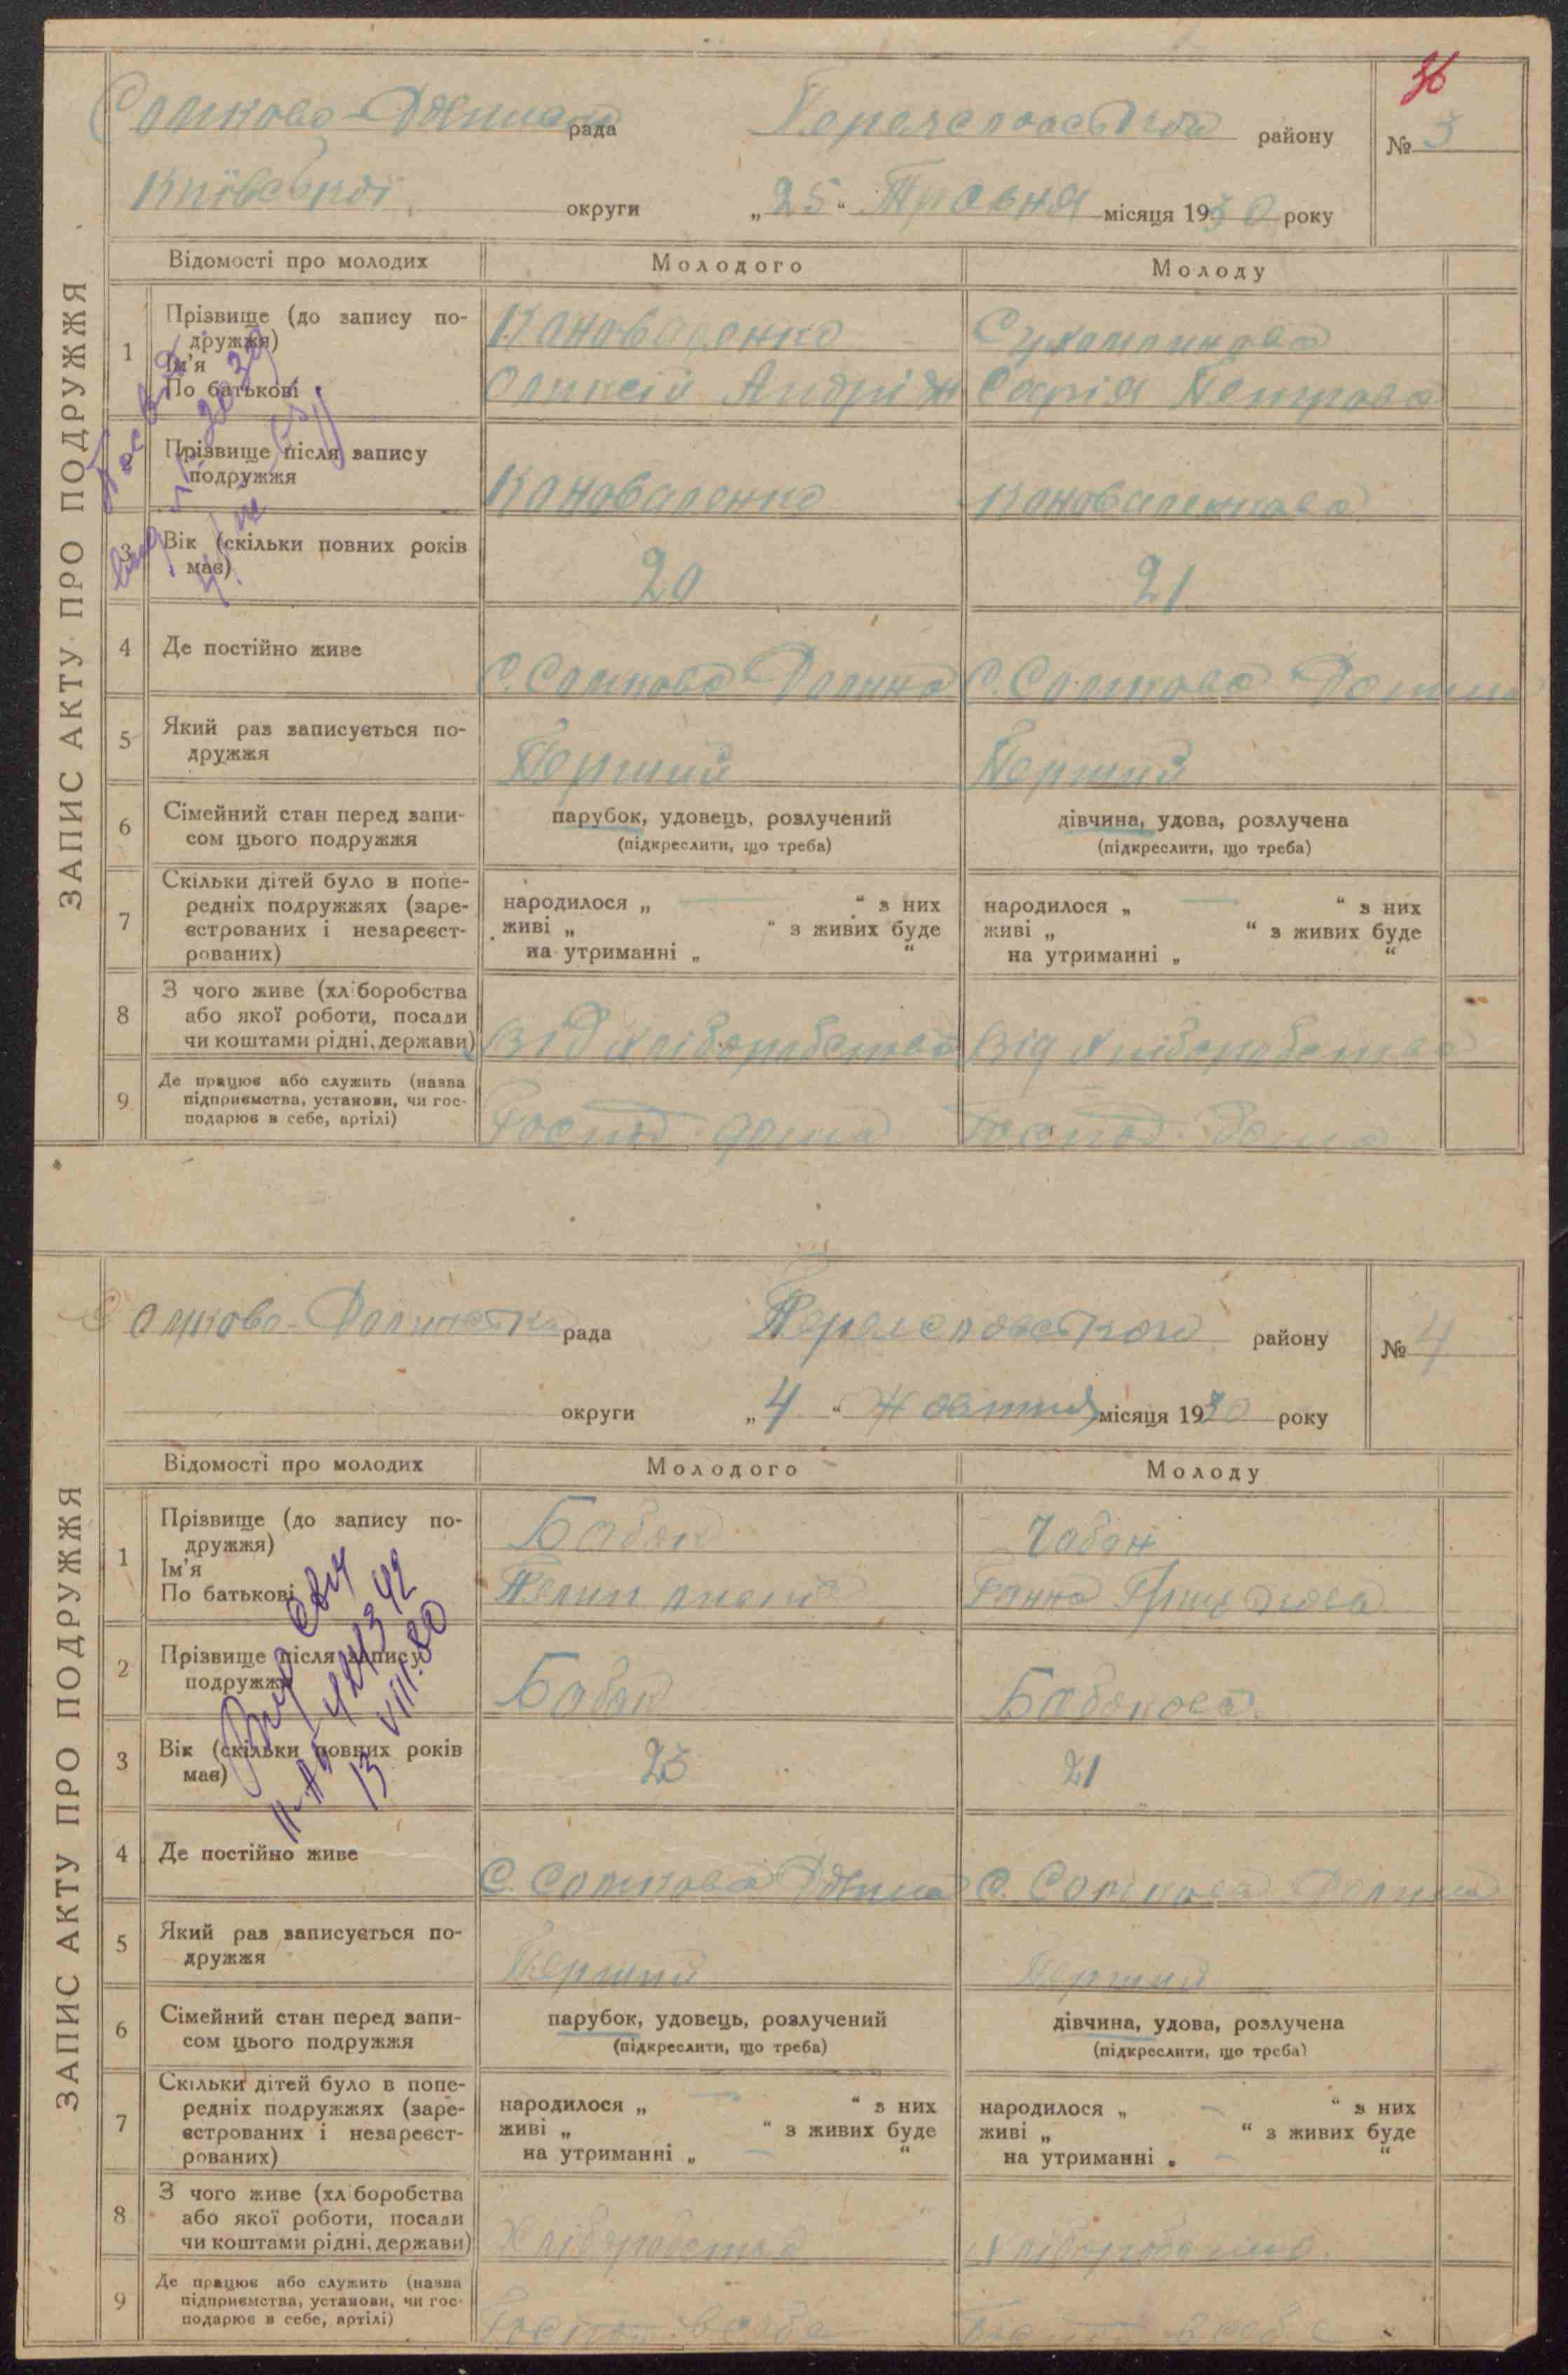 36
Сомково-Долинська рада Переяславської району № 3
Київської округи „25“ Травня місяця 1930 року
ЗАПИС АКТУ ПРО ПОДРУЖЖЯ
Відомості про молодих Молодого Молоду
1 Прізвище (до запису подружжя) Коноваленко
Ім'я
По батькові Оликсій Петрова
2 Прізвище після запису
подружжя Коноваленко Коноваленкова
3 Вік (скільки повних років
має) 20 21
4 Де постійно живе С. Сомкова Долина С. Сомкова Долина
5 Який раз записується по-
дружжя Перший Перший
6 Сімейний стан перед запи- парубок, удовець, розлучений дівчина, удова, розлучена
сом цього подружжя (підкреслити, що треба) (підкреслити, що треба)
7 Скільки дітей було в попе-
редніх подружжях (заре- народилося „ — “ з них народилося „ — “ з них
єстрованих і незареєст- живі „ “ з живих буде живі „ “ з живих буде
рованих) на утриманні „ “ на утриманні „ “
8 З чого живе (хліборобства
або якої роботи, посади
чи коштами рідні, держави) Від хліборобства Від хліборобства
9 Де працює або служить (назва
підприємства, установи, чи гос-
подарює в себе, артілі) Господ. дома Господ. дома
Сомково-Долинська рада Переяславського району № 4
округи „4“ Жовтня місяця 1930 року
ЗАПИС АКТУ ПРО ПОДРУЖЖЯ
Відомості про молодих Молодого Молоду
1 Прізвище (до запису по-
дружжя) Бабак Чабан
Ім'я
По батькові Ганна
2 Прізвище після запису
подружжя Бабак Бабакова
3 Вік (скільки повних років
має) 23 21
13 VIII.80
4 Де постійно живе С. Сомкова Долина С. Сомкова Долина
5 Який раз записується по-
дружжя Перший Перший
6 Сімейний стан перед запи- парубок, удовець, розлучений дівчина, удова, розлучена
сом цього подружжя (підкреслити, що треба) (підкреслити, що треба)
7 Скільки дітей було в попе-
редніх подружжях (заре- народилося „ — “ з них народилося „ — “ з них
єстрованих і незареєст- живі „ “ з живих буде живі „ “ з живих буде
рованих) на утриманні „ — “ на утриманні „ — “
8 З чого живе (хліборобства
або якої роботи, посади
чи коштами рідні, держави) Хліборобства Хліборобства
9 Де працює або служить (назва
підприємства, установи, чи гос-
подарює в себе, артілі) Господ. в себе Господ. в себе